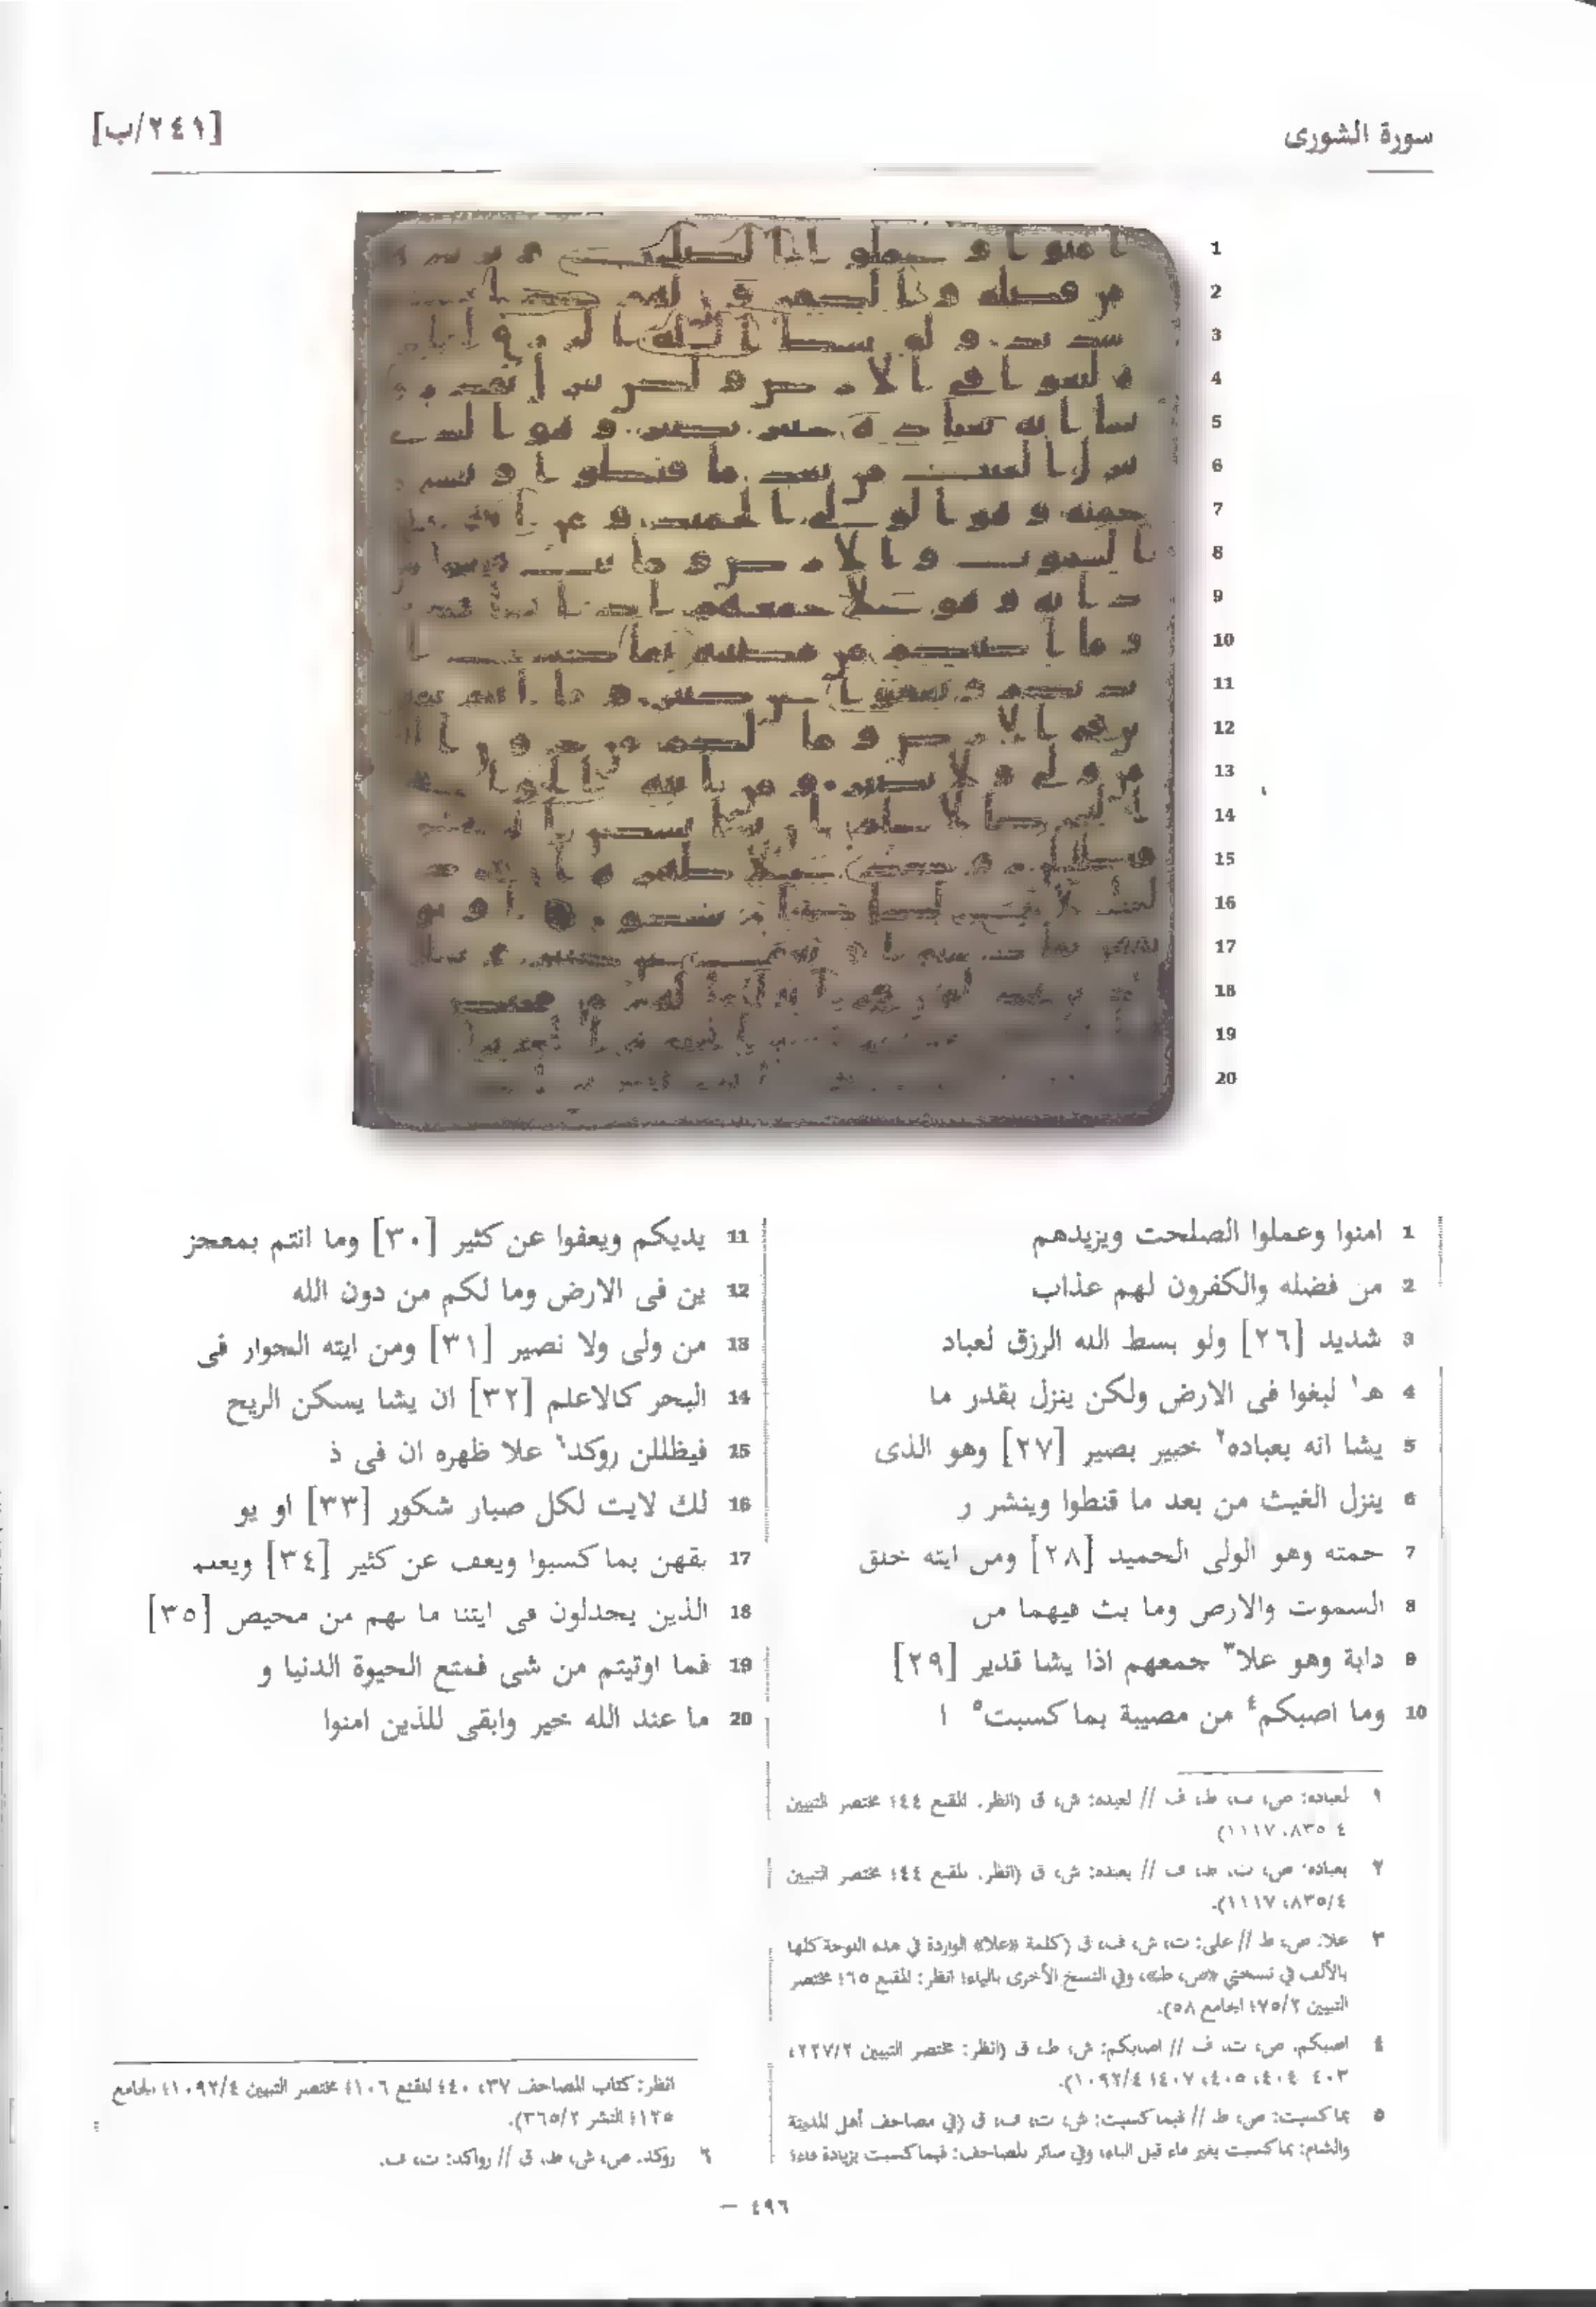 سورة الشورى
[٢٤١/ب]
1 امنوا وعملوا الصلحت ويزيدهم
2 من فضله والكفرون لهم عذاب
3 شديد [٢٦] ولو بسط الله الرزق لعباد
4 ه١ لبغوا فى الارض ولكن ينزل بقدر ما
5 يشا انه بعباده٢ خبير بصير [٢٧] وهو الذى
6 ينزل الغيث من بعد ما قنطوا وينشر ر
7 حمته وهو الولى الحميد [٢٨] ومن ايته خلق
8 السموت والارض وما بث فيهما من
9 دابة وهو علا٣ جمعهم اذا يشا قدير [٢٩]
10 وما اصبكم٤ من مصيبة بما كسبت٥ ا
11 يديكم ويعفوا عن كثير [٣٠] وما انتم بمعجز
12 ين فى الارض وما لكم من دون الله
13 من ولى ولا نصير [٣١] ومن ايته الجوار فى
14 البحر كالاعلم [٣٢] ان يشا يسكن الريح
15 فيظللن روكد٦ علا ظهره ان فى ذ
16 لك لايت لكل صبار شكور [٣٣] او يو
17 بقهن بما كسبوا ويعف عن كثير [٣٤] ويعلم
18 الذين يجدلون فى ايتنا ما لهم من محيص [٣٥]
19 فما اوتيتم من شى فمتع الحيوة الدنيا و
20 ما عند الله خير وابقى للذين امنوا
١ لعباده: ص، ت، ط، ف // لعبده: ش، ق (انظر: المقنع ٤٤؛ مختصر التبيين
٤/٨٣٥، ١١١٧)
٢ بعباده: ص، ت، ط، ف // بعبده: ش، ق (انظر: المقنع ٤٤؛ مختصر التبيين
٤/٨٣٥، ١١١٧).
٣ علا: ص، ط // على: ت، ش، ف، ق (كلمة «علا» الواردة في هذه اللوحة كلها
بالألف في نسختي «ص، ط»، وفي النسخ الأخرى بالياء؛ انظر: المقنع ٦٥؛ مختصر
التبيين ٢/٧٥؛ الجامع ٥٨).
٤ اصبكم: ص، ت، ف // اصابكم: ش، ط، ق (انظر: مختصر التبيين ٢/٢٢٧؛
٤٠٣، ٤٠٤، ٤٠٥، ٤٠٧؛ ٤/١٠٩٢).
٥ بما كسبت: ص، ط // فبما كسبت: ش، ت، ف، ق (في مصاحف أهل المدينة
والشام: بما كسبت بغير فاء قبل الباء، وفي سائر المصاحف: فبما كسبت بزيادة فاء؛
انظر: كتاب المصاحف ٣٧، ٤٠؛ المقنع ١٠٦؛ مختصر التبيين ٤/١٠٩٢؛ الجامع
١٢٥؛ النشر ٢/٣٦٥).
٦ روكد: ص، ش، ط، ق // رواكد: ت، ف.
٤٩٦ –